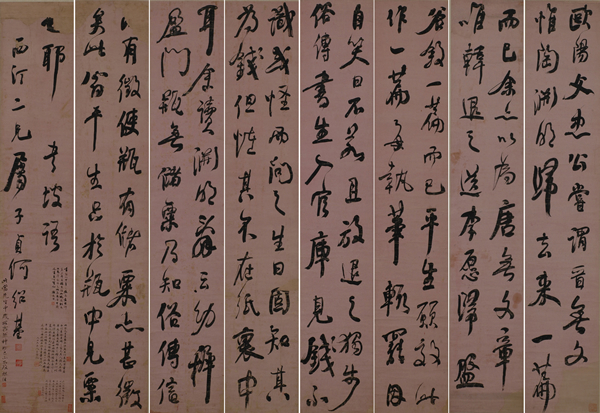 歐陽文忠公嘗謂晉無文
惟陶淵明歸去來一篇
而已余亦以為唐無文章
唯韓退之送李愿歸盤
谷敘一篇而已平生願效此
作一篇每執筆輒罷因
自笑曰不若且放退之獨步
俗傳書生入官庫見錢不
識或怪而問之生曰固知其
為錢但怪其不在紙裹中
耳余讀淵明辭云幼稚
盈門瓶無儲粟乃知俗傳信
有徵使瓶有儲粟亦甚微
矣此翁平生只於瓶中見粟
也耶 書坡語
西汀二兄屬子貞何紹基